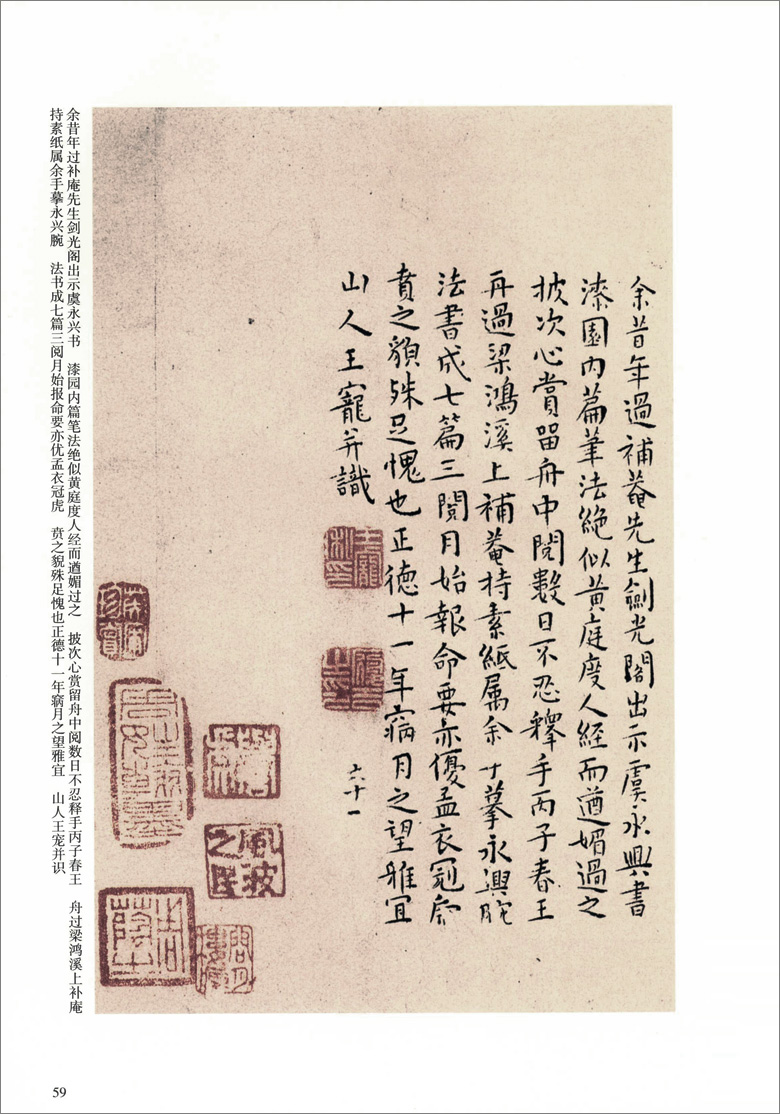 余昔年過補菴先生劍光閣出示虞永興書
漆園內篇筆法絕似黃庭度人經而遒媚過之
披次心賞留舟中閱數日不忍釋手丙子春王
再過梁鴻溪上補菴持素紙屬余摹永興腕
法書成七篇三閱月始報命要亦優孟衣冠虎
賁之貌殊足愧也正德十一年寎月之望雅宜
山人王寵并識
六十一
風波之民
余昔年过补庵先生剑光阁出示虞永兴书 漆园内篇笔法绝似黄庭度人经而遒媚过之 披次心赏留舟中阅数日不忍释手丙子春王 舟过梁鸿溪上补庵
持素纸属余手摹永兴腕 法书成七篇三阅月始报命要亦优孟衣冠虎 贲之貌殊足愧也正德十一年寎月之望雅宜 山人王宠并识
59